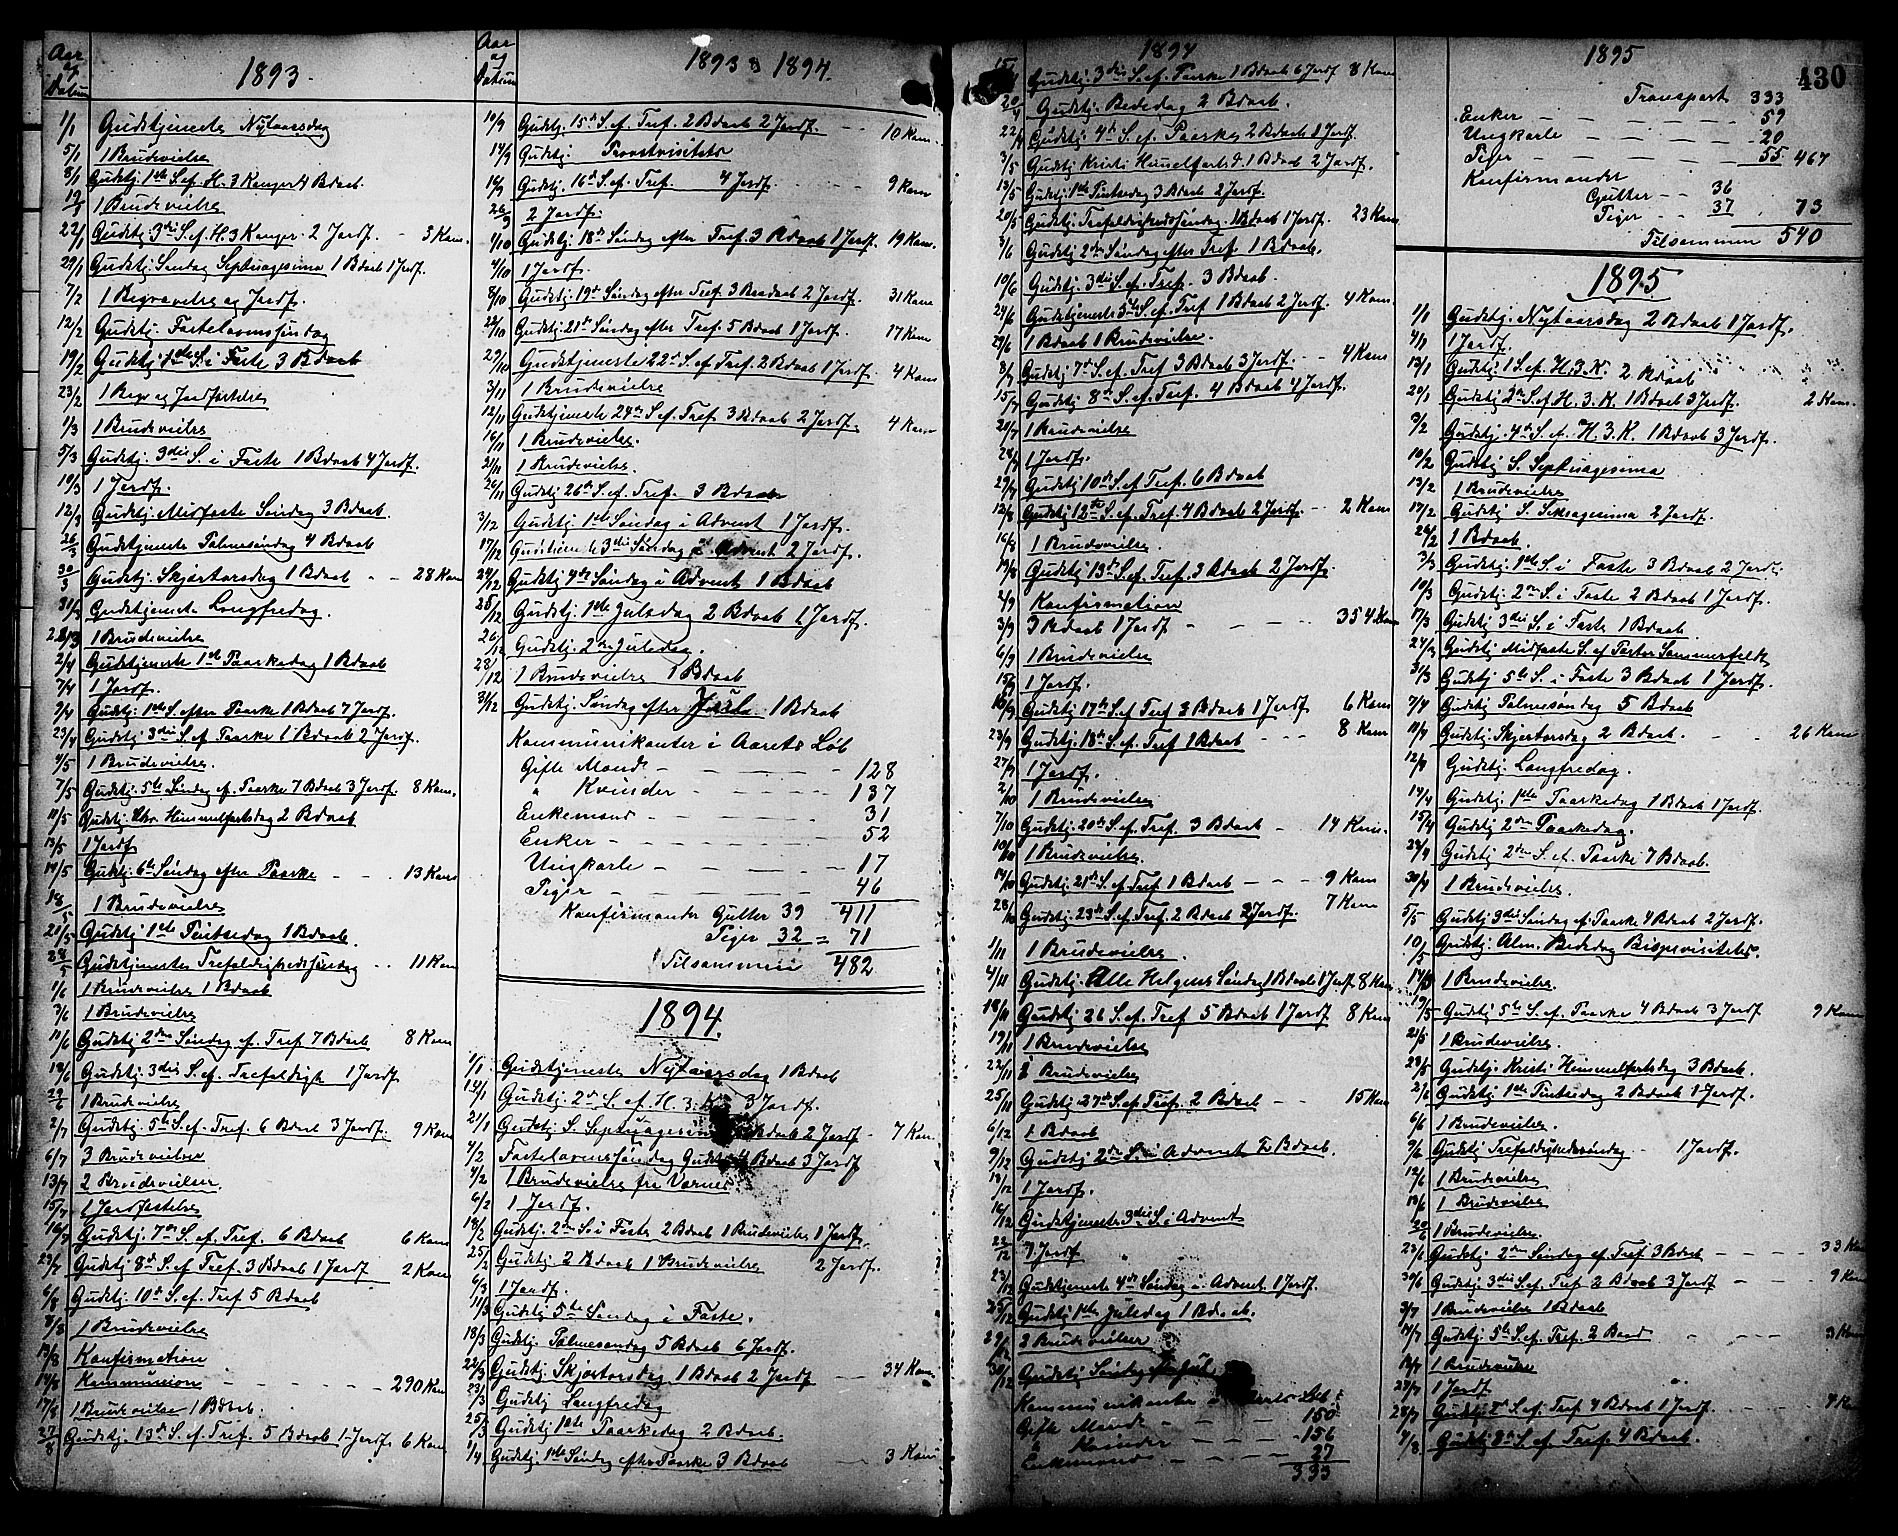 Aar
og
Datum
1893.
1/1 Gudstjeneste Nytaarsdag
5/1 1 Brudevielse
8/1 Gudstj. 1ste S. ef. H. 3 Konger 4 Bdaab.
12/1 1 Brudevielse
22/1 Gudstj. 3die S. ef. H. 3 Konger. 2 Jordf. - 3 Kom.
29/1 Gudstj. Søndag Septuagesima 1 Bdaab 1 Jordf.
7/2 1 Begravelse og Jordf.
12/2 Gudstj. Fastelavnssøndag
19/2 Gudstj. 1ste S. i Faste 3 Bdaab
23/2 1 Begr og Jordfæstelse
1/3 1 Brudevielse
5/3 Gudstj. 3die S. i Faste 1 Bdaab 4 Jordf.
10/3 1 Jordf.
12/3 Gudstj. Midfaste Søndag 3 Bdaab.
26/3 Gudstjeneste Palmesøndag 4 Bdaab
30/3 Gudstj. Skjærtorsdag 1 Bdaab - - 28 Kom
31/3 Gudstjenest. Langfredag.
28/3 1 Brudevielse
2/4 Gudstjeneste 1ste Paaskedag 1 Bdaab
7/4 1 Jordf.
9/4 Gudstj. 1ste S. efter Paaske 1 Bdaab 7 Jordf.
23/4 Gudstj. 3die S. ef. Paaske 1 Bdaab 2 Jordf.
4/5 1 Brudevielse.
7/5 Gudstj. 5te Søndag ef. Paaske 7 Bdaab 3 Jordf. 8 Kom.
11/5 Gudstj. Chr. Himmelfartsdag 2 Bdaab
13/5 1 Jordf
14/5 Gudstj. 6te Søndag efter Paaske - - - 13 Kom
18/5 1 Brudevielse
21/5 Gudstj. 1ste Pintsedag 1 Bdaab.
28/5 Gudstjeneste Trefoldighedssøndag - - 11 Kom
1/6 1 Brudevielse 1 Bdaab
3/6 1 Brudevielse
11/6 Gudstj. 2den Søndag ef. Tref. 7 Bdaab 8 Kom
18/6 Gudstj. 3die S. ef. Trefoldigh 1 Jordf
1 Brudevielse
2/7 Gudstj. 5te S. ef. Tref. 6 Bdaab 3 Jordf. 9 Kom
6/7 3 Brudevielser
13/7 2 Brudevielser.
15/7 1 Jordfæstelse
16/7 Gudstj. 7de S. ef. Tref. 6 Bdaab 6 Kom
23/7 Gudstj. 8de S. ef. Tref. 3 Bdaab 1 Jordf 2 Kom
6/8 Gudstj. 10de S. ef. Tref 5 Bdaab
8/8 1 Brudevielse
13/8 Konfirmation
14/8 Kommunion - - - - - - 290 Kom
17/8 1 Brudevielse 1 Bdaab.
27/8 Gudstj. 13de S. ef. Tref. 5 Bdaab 1 Jordf. 6 Kom
Aar
og
Datum
1893 & 1894.
10/9 Gudstj. 15de S. ef. Tref. 2 Bdaab 2 Jordf. - - 10 Kom.
14/9 Gudstj. Provstvisitats
Gudstj. 16de S. ef. Tref. 4 Jordf. 9 Kom
26/9 2 Jordf.
1/10 Gudstj. 18de Søndag efter Tref. 3 Bdaab 1 Jordf. 19 Kom.
4/10 1 Jordf.
8/10 Gudstj. 19de Søndag efter Tref. 3 Bdaab 2 Jordf. 31 Kom
22/10 Gudstj. 21de Søndag efter Tref. 5 Bdaab 1 Jordf. 17 Kom
29/10 Gudstjeneste 22de S. ef. Tref. 2 Bdaab 1 Jordf. 4 Kom
3/11 1 Brudevielse
12/11 Gudstjeneste 24de S. ef. Tref. 3 Bdaab 2 Jordf. 4 Kom
16/11 1 Brudevielse.
21/11 1 Brudevielse.
26/11 Gudstj. 26de S. ef. Tref. 3 Bdaab
3/12 Gudstj. 1ste Søndag i Advent 1 Jordf.
17/12 Gudstjeneste 3die Søndag i Advent 2 Jordf.
24/12 Gudstj. 4de Søndag i Advent 1 Bdaab
25/12 Gudstj. 1ste Juledag 2 Bdaab 1 Jordf.
26/12 Gudstj. 2den Juledag.
28/12 1 Brudevielse 1 Bdaab
31/12 Gudstj. Søndag efter Juul 1 Bdaab
Kommunikanter i Aarets Løb
Gifte Mænd - - - - 128
" Kvinder - - - - 137
Enkemænd - - - - 31
Enker - - - - 52
Ungkarle - - - - 17
Piger - - - - 46
Konfirmander Gutter 39 411
Piger 32 = 71
Tilsammen 482
1894.
1/1 Gudstjeneste Nytaarsdag 1 Bdaab
14/1 Gudstj. 2den S. ef. H. 3. 3 Jordf.
21/1 Gudstj. S. Bdaab 2 Jordf - 7 Kom.
4/2 Fastelavnssøndag Gudstj. 4 Bdaab 3 Jordf
4/2 1 Brudevielse fra Værnes
6/2 1 Jordf.
18/2 Gudstj. 2den S. i Faste 2 Bdaab 1 Brudevielse 1 Jordf.
25/2 Gudstj. 2 Bdaab 1 Brudevielse 2 Jordf.
6/3 1 Jordf.
11/3 Gudstj. 5te Søndag i Faste.
18/3 Gudstj. Palmesøndag 5 Bdaab 6 Jordf.
22/3 Gudstj. Skjærtorsdag 1 Bdaab 2 Jordf - - 34 Kom.
23/3 Gudstj Langfredag
25/3 Gudstj. 1ste Paaskedag 2 Bdaab.
1/4 Gudstj. 1ste Søndag efter Paaske 3 Bdaab 3 Kom
1894
Gudstj. 3die S. ef. Paaske 1 Bdaab 6 Jordf 8 Kom
20/4 Gudstj. Bededag 2 Bdaab.
22/4 Gudstj. 4de S. ef. Paaske 2 Bdaab 1 Jordf.
3/5 Gudstj Kristi Himmelfartsd. 1 Bdaab 2 Jordf.
13/5 Gudstj. 1ste Pintsedag 3 Bdaab 2 Jordf.
20/5 Gudstj. Trefoldighedssøndag. 1 Bdaab 1 Jordf. 23 Kom
3/6 Gudstj. 2den Søndag efter Tref 1 Bdaab.
10/6 Gudstj. 3die S. ef. Tref. 3 Bdaab.
24/6 Gudstjeneste 5te S. ef. Tref 1 Bdaab 2 Jordf. 4 Kom
29/6 1 Bdaab 1 Brudevielse.
8/7 Gudstj. 7de S. ef. Tref 3 Bdaab 3 Jordf. - - 4 Kom
15/7 Gudstj. 8de S. ef. Tref. 4 Bdaab 4 Jordf.
1 Brudevielse
1 Jordf.
29/7 Gudstj 10de S. ef. Tref. 6 Bdaab
12/8 Gudstj 12te S. ef. Tref. 4 Bdaab 2 Jordf. - - 2 Kom
16/8 1 Brudevielse.
19/8 Gudstj. 13de S. ef. Tref. 3 Bdaab 2 Jordf.
2/9 Konfirmation
3/9 3 Bdaab 1 Jordf - - - - 354 Kom
6/9 1 Brudevielse
15/9 1 Jordf.
16/9 Gudstj. 17de S. ef Tref 3 Bdaab 1 Jordf 6 Kom
23/9 Gudstj. 18de S. ef. Tref 1 Bdaab - - - 8 Kom
27/9 1 Jordf.
2/10 1 Brudevielse
7/10 Gudstj. 20de S. ef. Tref. 3 Bdaab - 14 Kom.
10/10 1 Brudevielse.
14/10 Gudstj. 21de S. ef. Tref 1 Bdaab - - - 9 Kom
28/10 Gudstj. 23de S. ef. Tref. 2 Bdaab 2 Jordf. 7 Kom
1/11 1 Brudevielse.
4/11 Gudstj. Alle Helgens Søndag 1 Bdaab 1 Jordf. 8 Kom.
18/11 Gudstj 26 S. ef. Tref 5 Bdaab 1 Jordf 8 Kom
19/11 1 Brudevielse
22/11 Brudevielse
25/11 Gudstj. 27de S. ef. Tref. 2 Bdaab - - 15 Kom
6/12 1 Bdaab
9/12 Gudstj. 2den S. i Advent 2 Bdaab.
13/12 1 Jordf.
16/12 Gudstjeneste 3die S. i Advent
1 Jordf
23/12 Gudstjeneste 4de Søndag i Advent 1 Jordf.
25/12 Gudstj. 1ste Juledag 1 Bdaab.
Brudevielser
30/12 Gudstj Søndag efter Jul
Kommunikanter i Aarets Løb:
Gifte Mænd - - - 150
" Kvinder - - - 156
Enkemænd - - - 27
333
1895
430
Transport 333
Enker - - - - 59
Ungkarle - - - - 20
Piger - - - - 55 467
Konfirmander
Gutter - - 36
Piger - - 37 73
Tilsammen 540
1895
1/1 Gudstj. Nytaarsdag 2 Bdaab 1 Jordf.
1 Jordf.
13/1 Gudstj. 1 S. ef. H. 3. K. 2 Bdaab
20/1 Gudstj 2den S. ef H. 3. K. 1 Bdaab 3 Jordf. 2 Kom.
Gudstj. 4de S. ef. H. 3. K. 1 Bdaab 3 Jordf.
10/2 Gudstj. S. Septuagesima
13/2 1 Brudevielse
17/2 Gudstj S. Seksagesima 2 Jordf.
24/2 1 Bdaab.
3/3 Gudstj. 1ste S. i Faste 3 Bdaab 2 Jordf.
10/3 Gudstj. 2den S. i Faste 2 Bdaab 1 Jordf.
17/3 Gudstj 3die S. i Faste 1 Bdaab.
24/3 Gudstj Midfaste S. ef Pastor Sommerfelt
31/3 Gudstj 5te S. i Faste 3 Bdaab 1 Jordf.
7/4 Gudstj Palmesøndag 5 Bdaab
11/4 Gudstj Skjærtorsdag 2 Bdaab. - - 26 Kom
12/4 Gudstj Langfredag.
14/4 Gudstj. 1ste Paaskedag 1 Bdaab 1 Jordf.
15/4 Gudstj 2den Paaskedag.
Gudstj 2den S. ef. Paaske 7 Bdaab.
30/4 1 Brudevielse.
5/5 Gudstj 3die Søndag ef. Paaske 4 Bdaab 2 Jordf.
10/5 Gudstj. Alm. Bededag Bispevisitats.
1 Brudevielse.
19/5 Gudstj 5te S. ef. Paaske 4 Bdaab 3 Jordf 9 Kom
21/5 1 Brudevielse.
23/5 Gudstj. Kristi Himmelfartsdag 3 Bdaab.
2/6 Gudstj. 1ste Pintsedag 2 Bdaab 1 Jordf.
6/6 1 Brudevielse.
9/6 Gudstj Trefoldighedssøndag 1 Jordf.
12/6 1 Brudevielse
13/6 1 Brudevielse
20/6 1 Brudevielse.
23/6 Gudstj 2den Søndag ef. Tref. 3 Bdaab - - - 33 Kom
30/6 Gudstj 3die S. ef. Tref 2 Bdaab 3 Jordf - - 9 Kom
3/7 1 Brudevielse 1 Bdaab
14/7 Gudstj. 5te S. ef. Tref. 2 Baad - - - 3 Kom
1 Brudevielse
1 Jordf
Gudstj S. ef. Tref 4 Bdaab 1 Jordf - - 4 Kom
4/8 Gudstj 8de S. ef. Tref. 4 Bdaab.